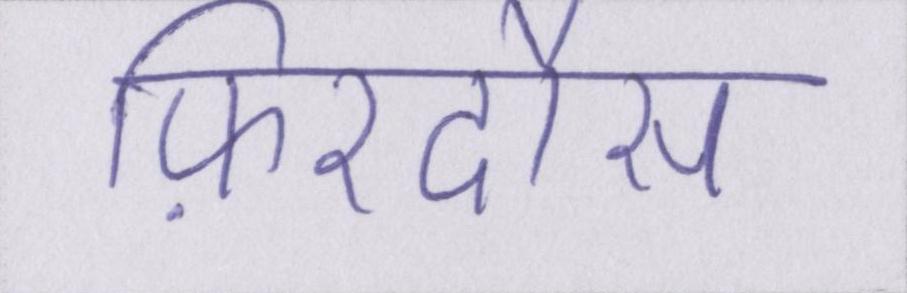 फ़िरदौस